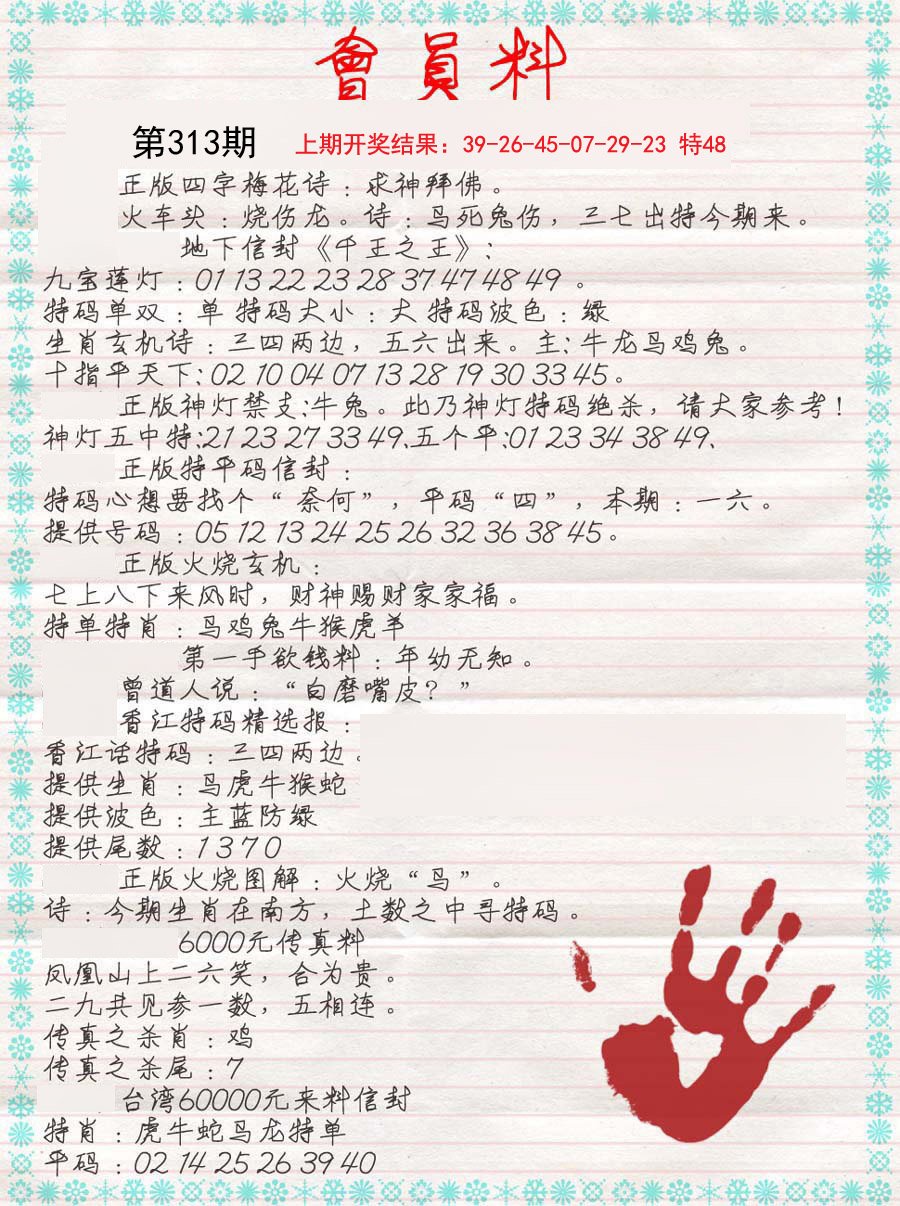 會員料
第313期 上期开奖结果：39-26-45-07-29-23 特48
正版四字梅花诗：求神拜佛。
火车头：烧伤龙。诗：鸟死兔伤，三七出特今期来。
地下信封《千王之王》：
九宝莲灯：01 13 22 23 28 37 47 48 49 。
特码单双：单 特码大小：大 特码波色：绿
生肖玄机诗：三四两边，五六出来。主：牛龙鸟鸡兔。
十指平天下：02 10 04 07 13 28 19 30 33 45。
正版神灯禁支：牛兔。此乃神灯特码绝杀，请大家参考！
神灯五中特：21 23 27 33 49、五个平：01 23 34 38 49、
正版特平码信封：
特码心想要找个“ 奈何”，平码“四”，本期：一六。
提供号码：05 12 13 24 25 26 32 36 38 45。
正版火烧玄机：
七上八下来风时，财神赐财家家福。
特单特肖：鸟鸡兔牛猴虎羊
第一手欲钱料：年幼无知。
曾道人说：“白磨嘴皮？”
香江特码精选报：
香江话特码：三四两边。
提供生肖：鸟虎牛猴蛇
提供波色：主蓝防绿
提供尾数：1 3 7 0
正版火烧图解：火烧“鸟”。
诗：今期生肖在南方，土数之中寻特码。
6000元传真料
凤凰山上二六笑，合为贵。
二九共见参一数，五相连。
传真之杀肖：鸡
传真之杀尾：7
台湾60000元来料信封
特肖：虎牛蛇鸟龙特单
平码：02 14 25 26 39 40